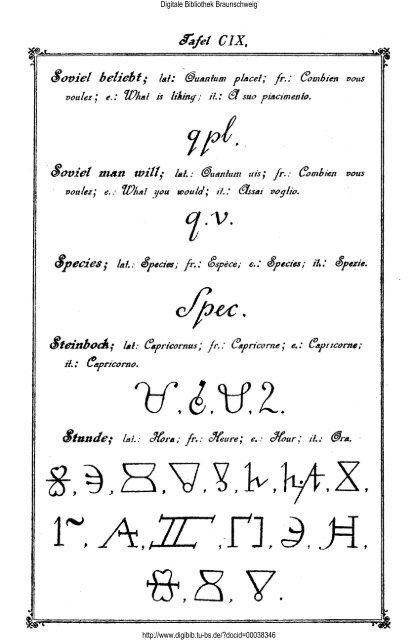 Digitale Bibliothek Braunschweig
Tafel CIX.
Soviel beliebt; lat: Quantum placet; fr.: Combien vous
voulez; e.: What is liking; it.: A suo piacimento.
qpl.
Soviel man will; lat.: Quantum uis; fr.: Combien vous
voulez; e.: What you would; it.: Assai voglio.
q.v.
Species; lat.: Species; fr.: Espèce; e.: Species; it.: Spezie.
Spec.
Steinbock; lat: Capricornus; fr.: Capricorne; e.: Capricorne;
it.: Capricorno.
Stunde; lat.: Hora; fr.: Heure; e.: Hour; it.: Ora.
http://www.digibib.tu-bs.de/?docid=00038346